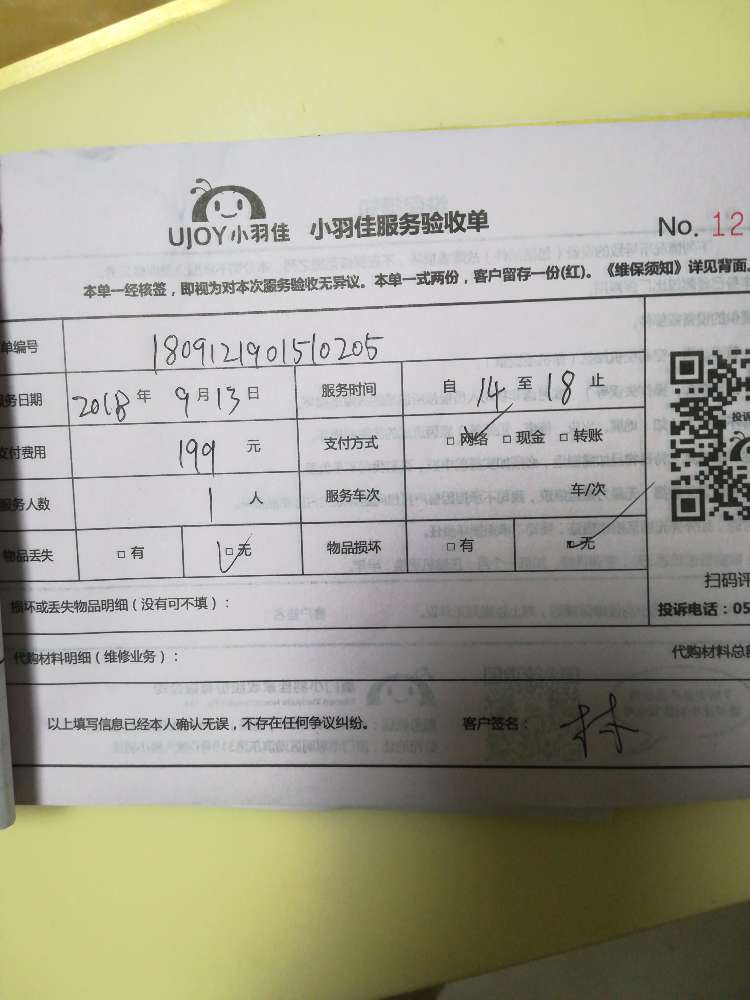 UJOY小羽佳 小羽佳服务验收单 No. 12
本单一经核签，即视为对本次服务验收无异议。本单一式两份，客户留存一份(红)。《维保须知》详见背面。
单编号 1809121901510205
服务日期 2018 年 9 月 13 日 服务时间 自 14 至 18 止
支付费用 199 元 支付方式 □ 网络 □ 现金 □ 转账
服务人数 1 人 服务车次 车/次
物品丢失 □ 有 □ 无 物品损坏 □ 有 □ 无
扫码评
损坏或丢失物品明细（没有可不填）： 投诉电话：05
代购材料明细（维修业务）： 代购材料总
以上填写信息已经本人确认无误，不存在任何争议纠纷。 客户签名： 林